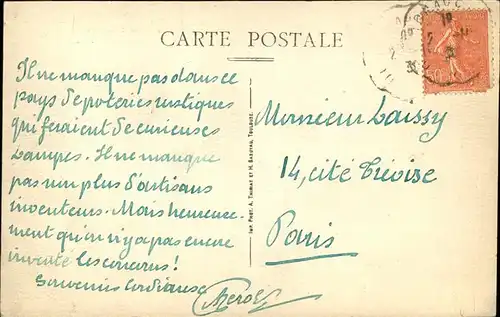 CARTE POSTALE
Il ne manque pas dans ce
pays de poteries rustiques
qui feraient de curieuses
Lampes. Il ne manque
pas non plus d'artisans
inventeurs. Mais heureuse-
ment qu'on n'y a pas encore
inventé les concours!
Souvenirs cordiaux
Monsieur Laissy
14, cité Trévise
Paris